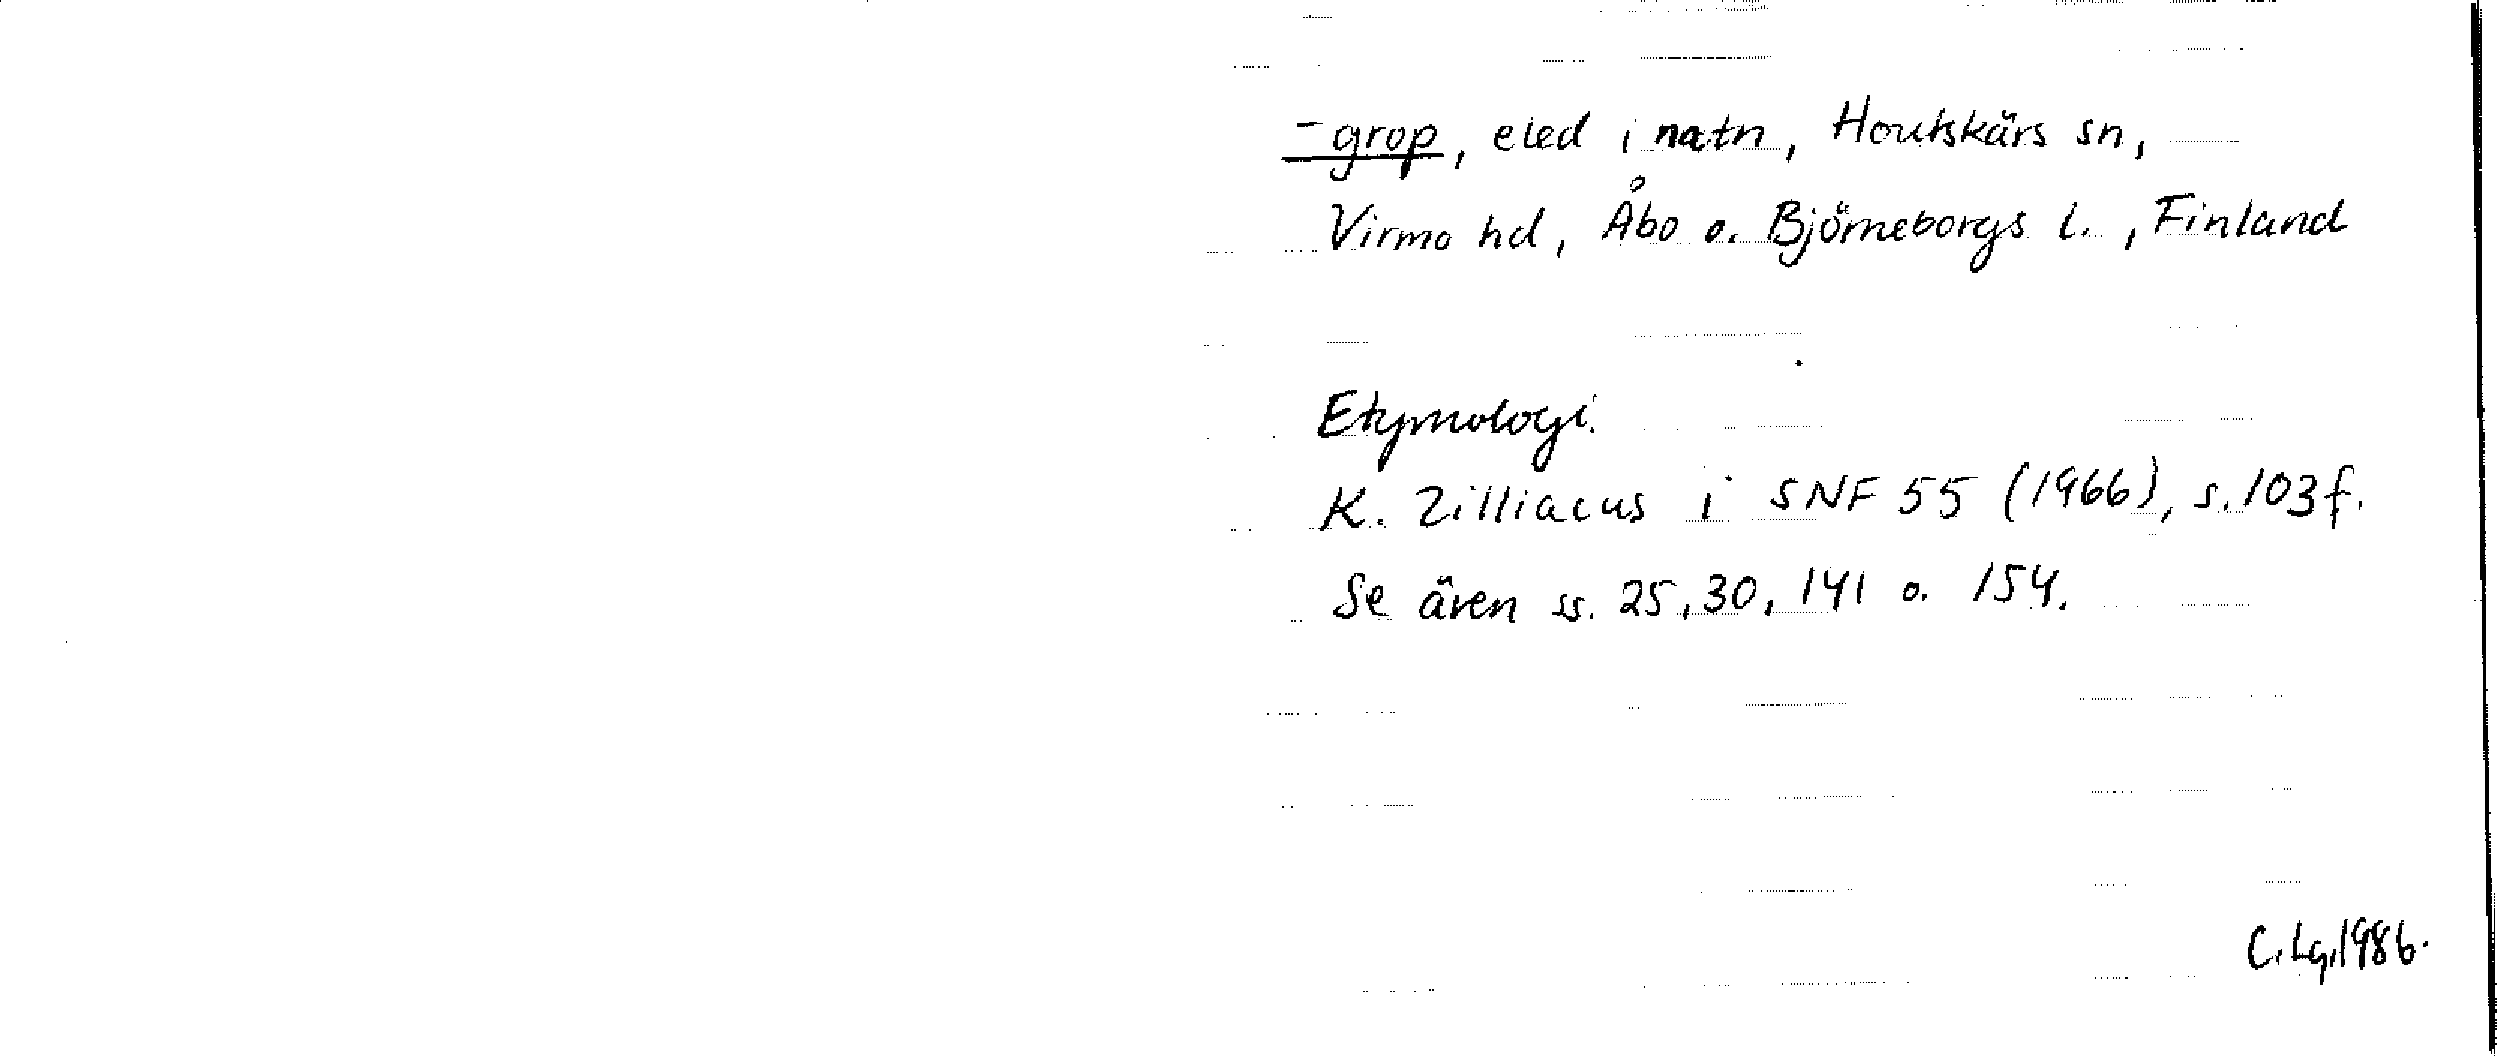 -grop, eled i natn, Houtskärs sn,
Virmo hd, Åbo o. Björneborgs l., Finland
Etymologi.
K. Zilliacus i SNF 55 (1966), s. 103 f.
Se även ss. 25, 30, 141 o. 154.
C. Lg. 1986.